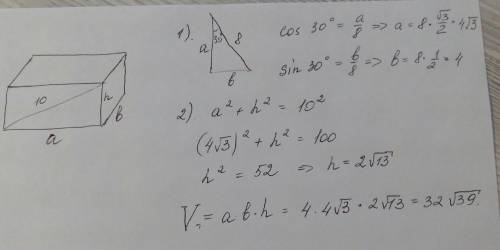 1). a 30 8 b
cos 30° = a/8 => a = 8 · √3/2 = 4√3
sin 30° = b/8 => b = 8 · 1/2 = 4
10 h b a
2) a² + h² = 10²
(4√3)² + h² = 100
h² = 52 => h = 2√13
V = a b · h = 4 · 4√3 · 2√13 = 32√39.